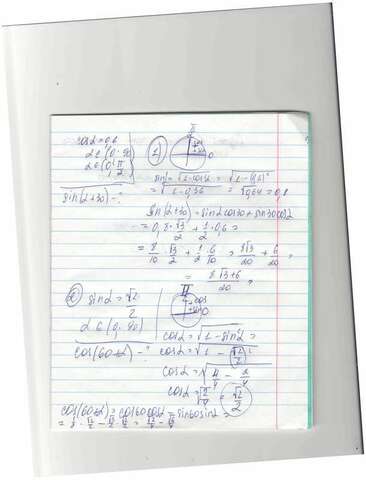 cosα=0,6
α∈(0;90)
α∈(0;π/2)
sin(α+30)-?
1)
sinα=√1-cosα = √1-(0,6)²
=√1-0,36 = √0,64=0,8
sin(α+30)=sinα cos30+sin30cosα
=0,8·√3/2+1/2·0,6=
=8/10·√3/2+1/2·6/10=8√3/20+6/20=
=8√3+6/20
2) sinα=√2/2
α∈(0;90)
cos(60+α)-?
cosα=√1-sin²α=
cosα=√1-(√2/2)²
cosα=√4/4-2/4
cosα=√2/4=√2/2
cos(60+α)=cos60cosα-sin60sinα=
=1/2·√2/2-√3/2·√2/2=√2/4-√6/4